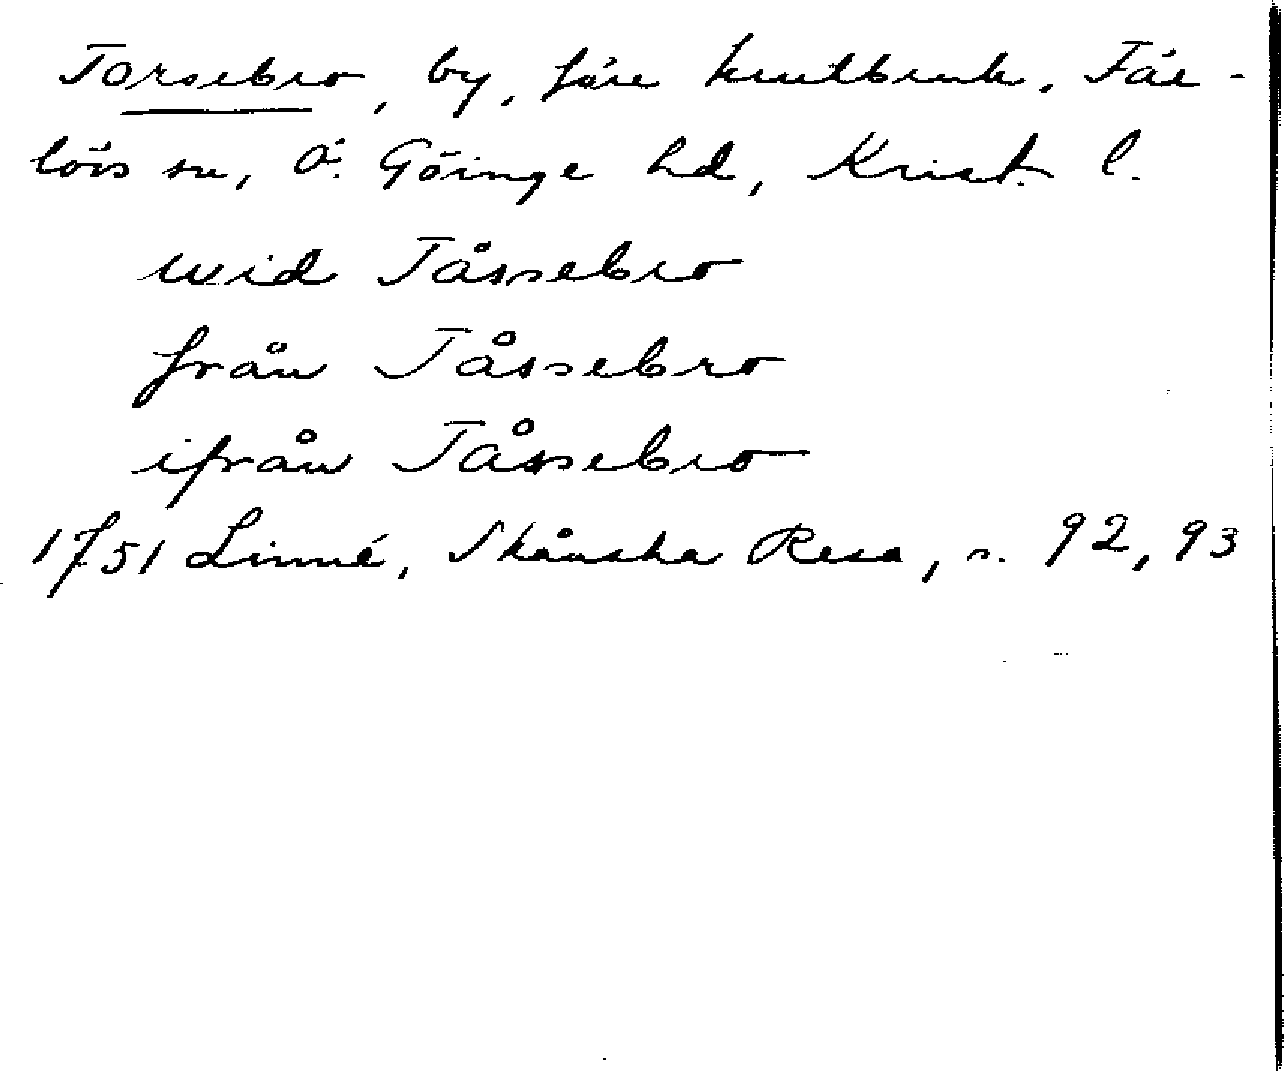 Torsebro, by, före krutbruk, Fär-
löis sn, Ö. Göinge hd, Krist. l.
wid Tåssebro
från Tåssebro
ifrån Tåssebro
1751 Linné, Skånska Resa, s. 92, 93